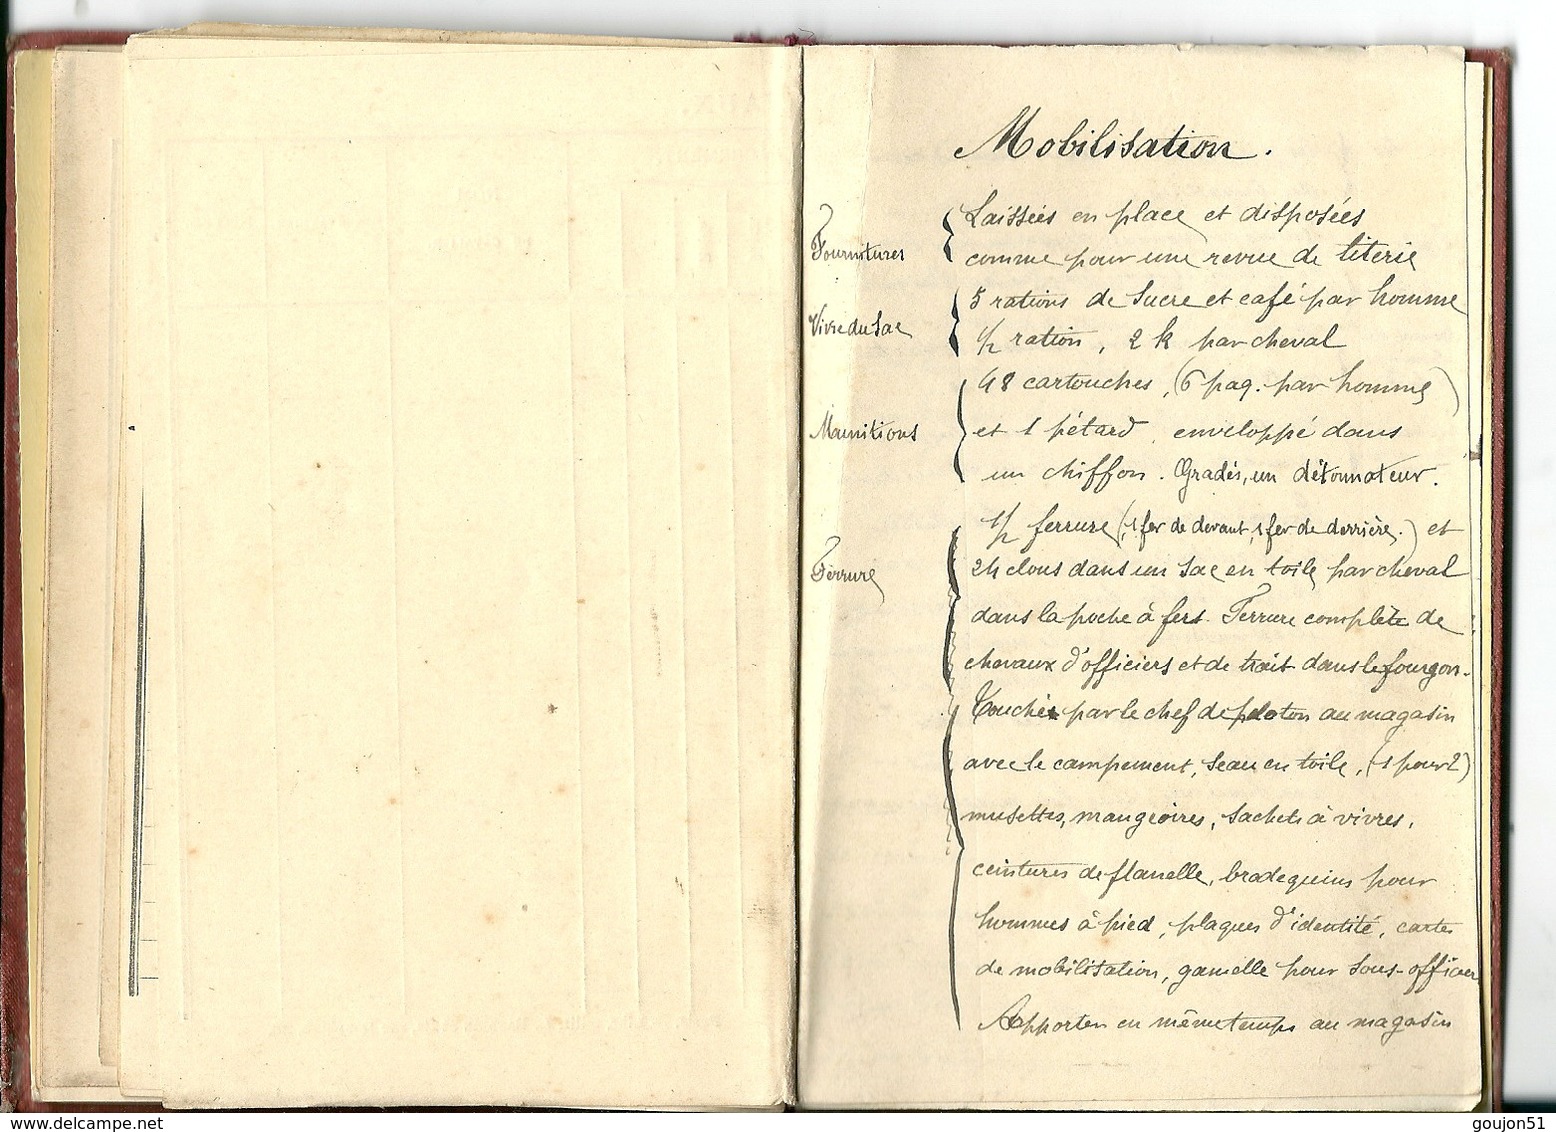 Mobilisation.
Fournitures
Laissées en place et disposées
comme pour une revue de literie
Vivre du sac
5 rations de sucre et café par homme
1/2 ration, 2 k par cheval
Munitions
48 cartouches, (6 paq. par homme)
et 1 pétard enveloppé dans
un chiffon. Gradés, un détonnateur.
Ferrure
1/2 ferrure (1 fer de devant, 1 fer de derrière.) et
24 clous dans un sac en toile par cheval
dans la poche à fers. Ferrure complète de
chevaux d'officiers et de trait dans le fourgon.
Touchés par le chef de peloton au magasin
avec le campement, seau en toile, (1 pour 2)
musettes, mangeoires, sachets à vivres,
ceintures de flanelle, brodequins pour
hommes à pied, plaques d'identité, cartes
de mobilisation, gamelle pour sous-officier
Apporter en même temps au magasin
www.delcampe.net
goujon51